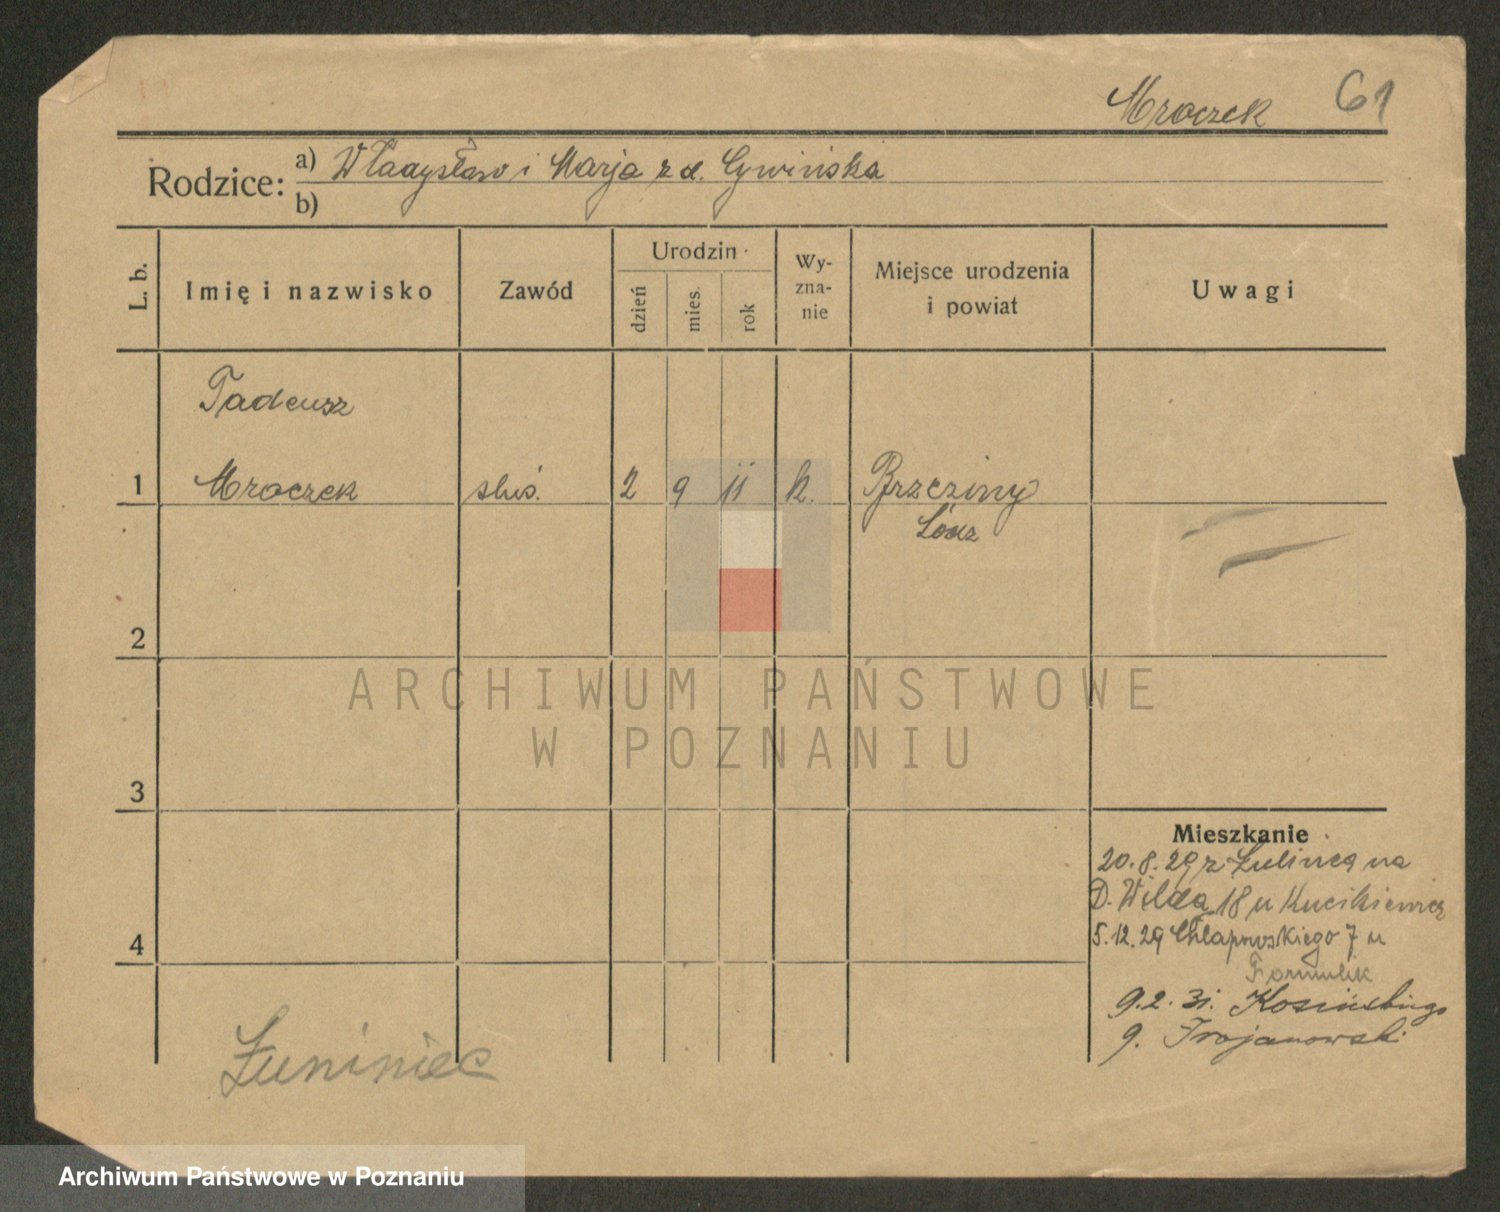 Mroczek 61
Rodzice: a) Władysław i Marja z d. Cywińska
b)
L. b. Imię i nazwisko Zawód Urodzin dzień mies. rok Wyznanie Miejsce urodzenia i powiat Uwagi
Tadeusz
1 Mroczek ślus. 2 9 11 k. Brzeziny
Łódź
2
ARCHIWUM PAŃSTWOWE
W POZNANIU
3
Mieszkanie
20.8.29 z na
D. Wilda 18 u
4 5.12.29 Chłapowskiego 7 u
9.2.31. Kosińskiego
9. Trojanowski
Łuniniec
Archiwum Państwowe w Poznaniu